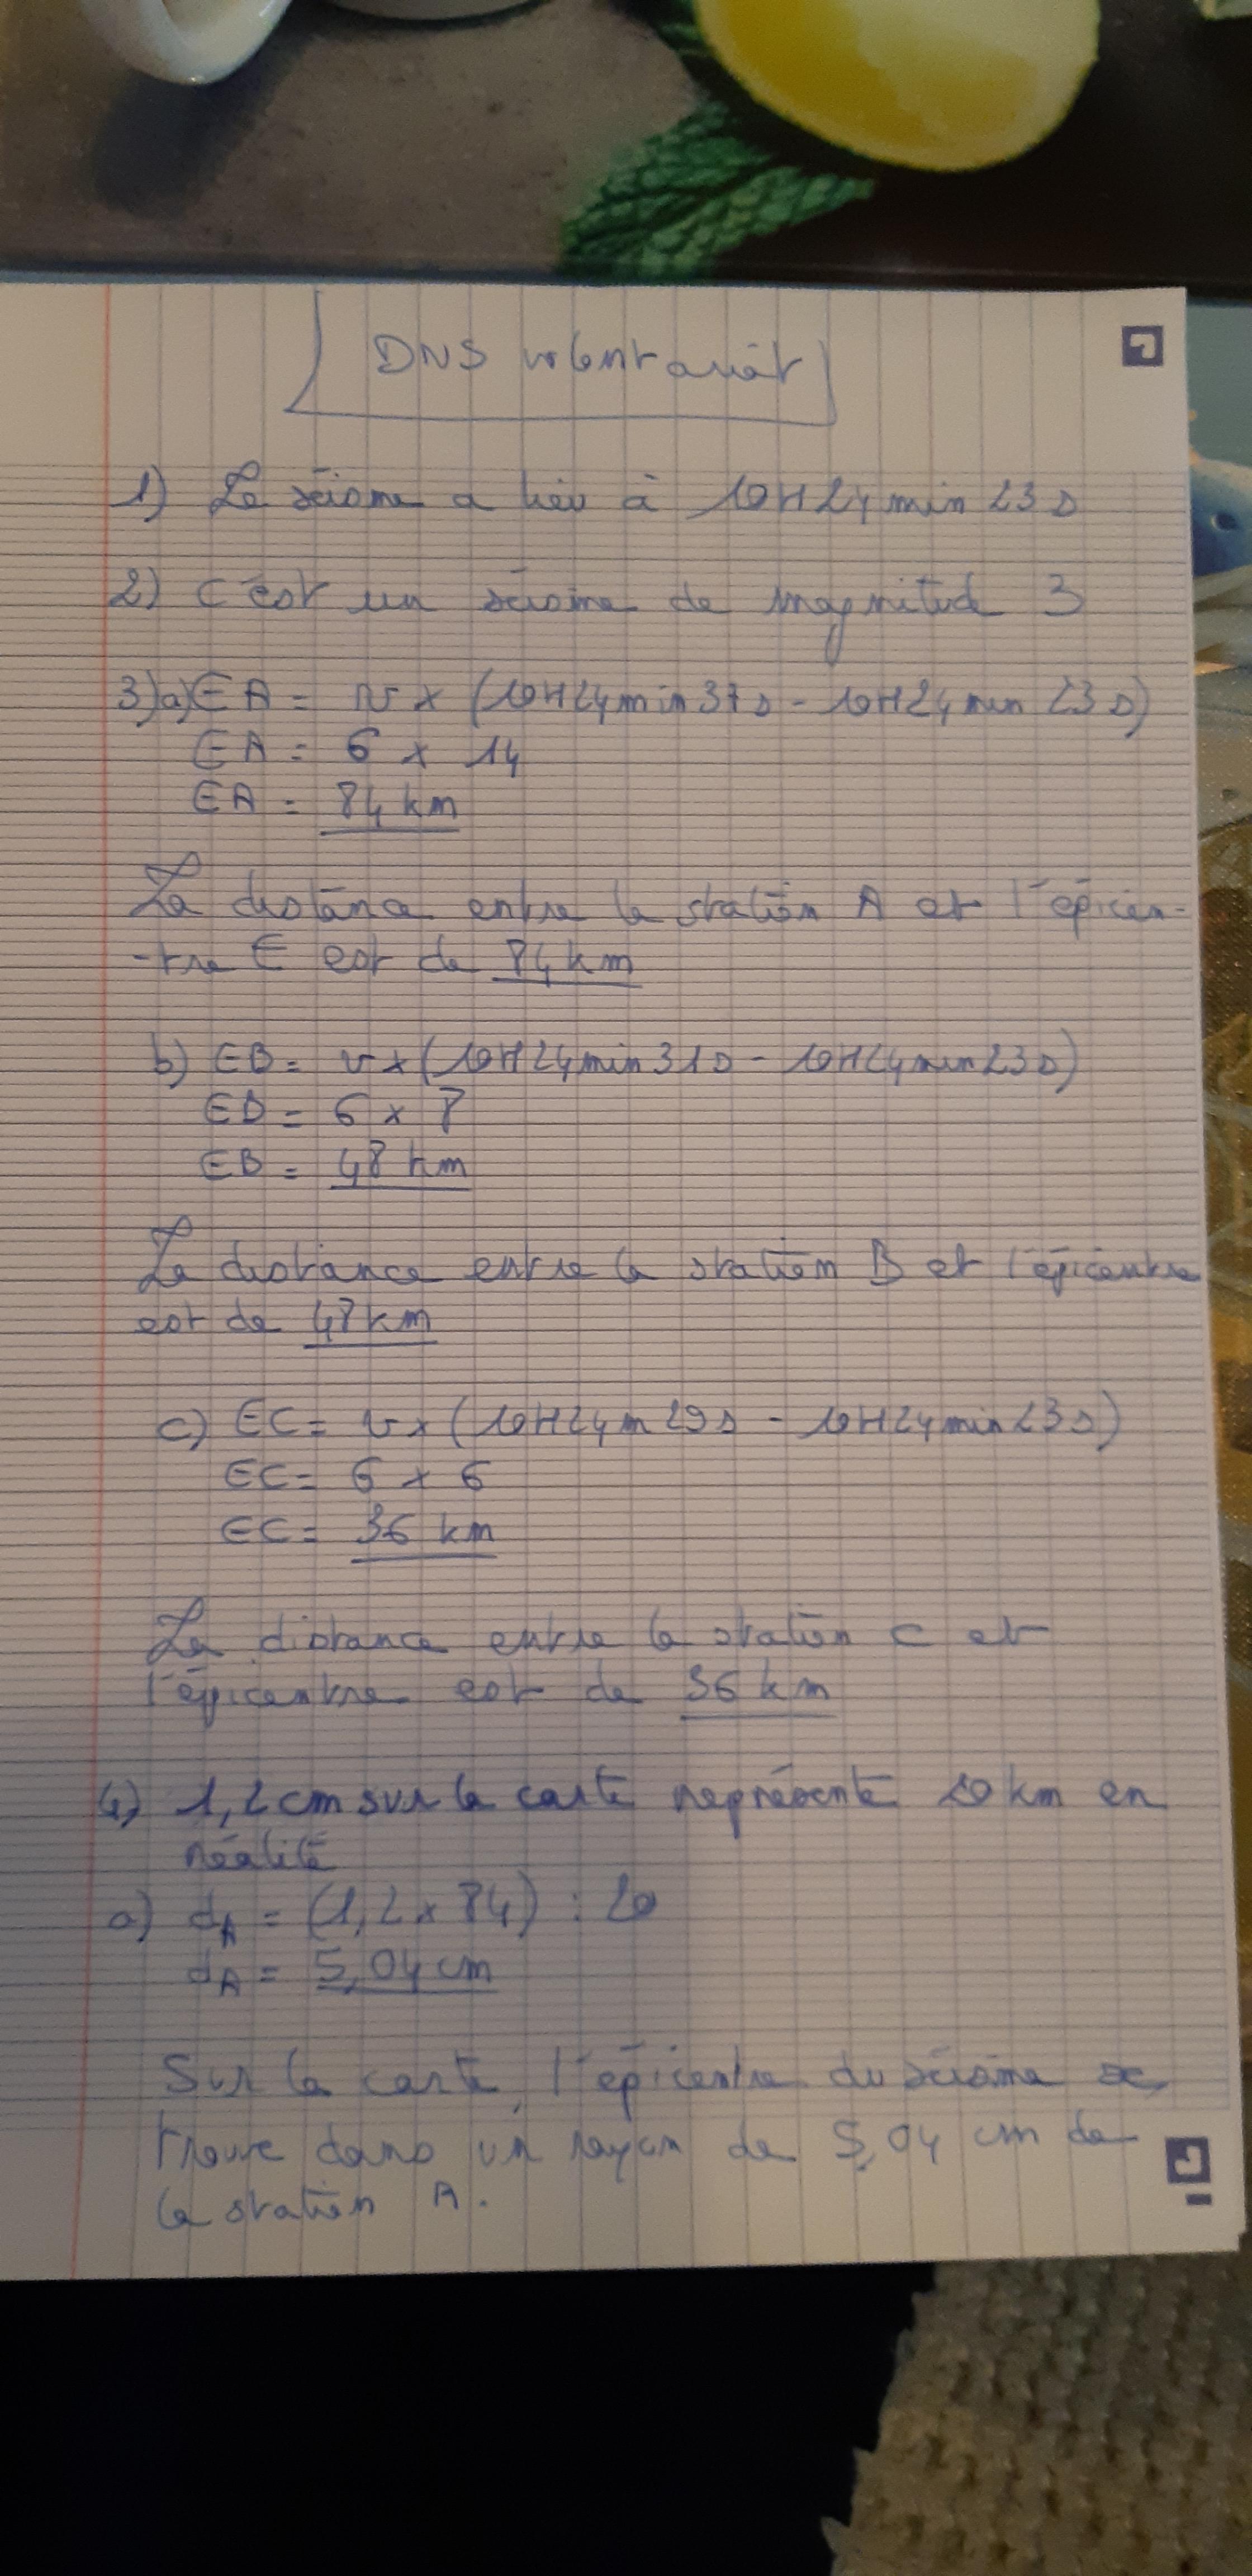 DNS volontariat
1) Le séisme a lieu à 10H24min 23s
2) C'est un séisme de magnitude 3
3)a) EA = v x (10H24min37s - 10H24min 23s)
EA = 6 x 14
EA = 84 km
La distance entre la station A et l'épicen-
-tre E est de 84km
b) EB = v x (10H24min31s - 10H24min23s)
EB = 6 x 8
EB = 48 km
La distance entre la station B et l'épicentre
est de 48km
c) EC = v x (10H24m29s - 10H24min23s)
EC = 6 x 6
EC = 36 km
La distance entre la station C et
l'épicentre est de 36 km
4) 1,2cm sur la carte représente 20km en
réalité
a) dA = (1,2 x 84) : 20
dA = 5,04cm
Sur la carte, l'épicentre du séisme se
trouve dans un rayon de 5,04 cm de
la station A.